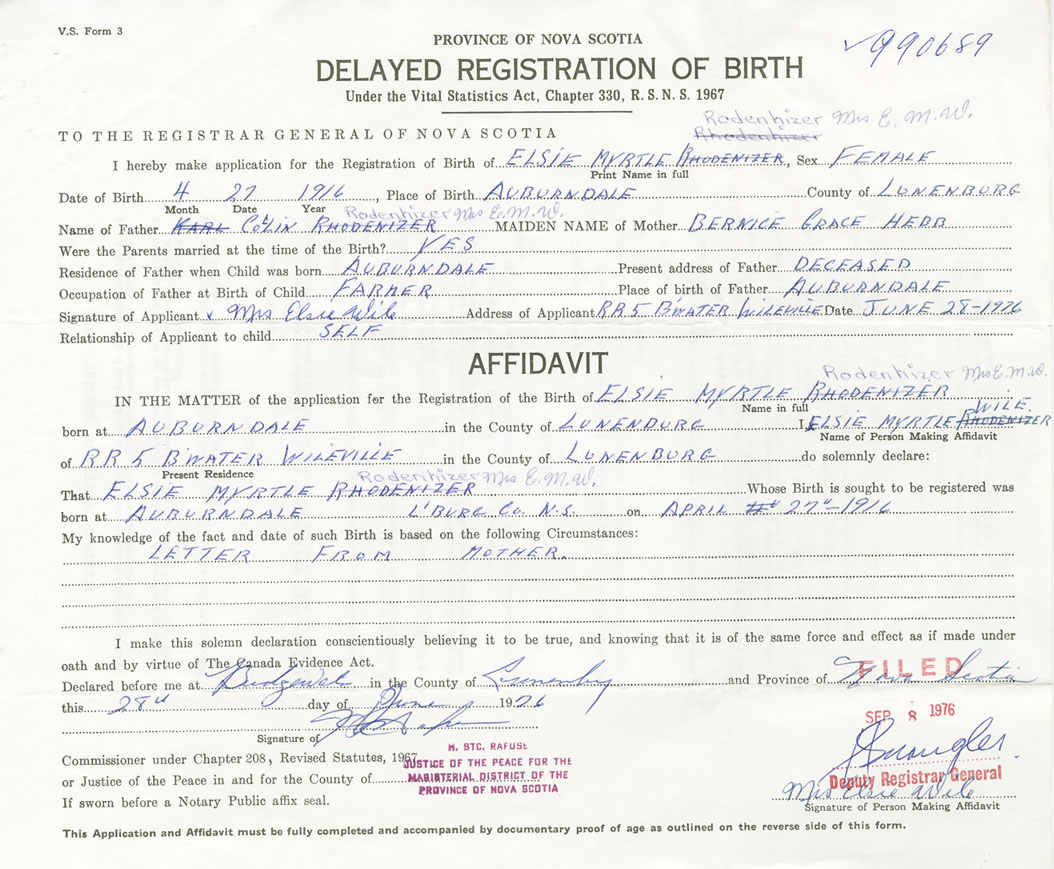 V.S. Form 3
PROVINCE OF NOVA SCOTIA
990689
DELAYED REGISTRATION OF BIRTH
Under the Vital Statistics Act, Chapter 330, R.S.N.S. 1967
Rodenhizer Mrs E. M. W.
TO THE REGISTRAR GENERAL OF NOVA SCOTIA Rhodenhizer
I hereby make application for the Registration of Birth of ELSIE MYRTLE RHODENIZER, Sex FEMALE
Print Name in full
Date of Birth 4 27 1916, Place of Birth AUBURNDALE County of LUNENBURG
Month Date Year Rodenhizer Mrs E. M. W.
Name of Father KARL COLIN RHODENIZER MAIDEN NAME of Mother BERNICE GRACE HEBB
Were the Parents married at the time of the Birth? YES
Residence of Father when Child was born AUBURNDALE Present address of Father DECEASED
Occupation of Father at Birth of Child FARMER Place of birth of Father AUBURNDALE
Signature of Applicant x Mrs Elsie Wile Address of Applicant RR5 B'WATER WILEVILLE Date JUNE 28-1976
Relationship of Applicant to child SELF
AFFIDAVIT
Rodenhizer Mrs E. M. W.
IN THE MATTER of the application for the Registration of the Birth of ELSIE MYRTLE RHODENIZER
Name in full WILE
born at AUBURNDALE in the County of LUNENBURG I, ELSIE MYRTLE RHODENIZER
Name of Person Making Affidavit
of RR5 B'WATER WILEVILLE in the County of LUNENBURG do solemnly declare:
Present Residence Rodenhizer Mrs E. M. W.
That ELSIE MYRTLE RHODENIZER Whose Birth is sought to be registered was
born at AUBURNDALE L'BURG Co. N.S. on APRIL 27"-1916
My knowledge of the fact and date of such Birth is based on the following Circumstances:
LETTER FROM MOTHER.
I make this solemn declaration conscientiously believing it to be true, and knowing that it is of the same force and effect as if made under
oath and by virtue of The Canada Evidence Act.
FILED
Declared before me at Bridgewater in the County of Lunenburg and Province of Nova Scotia
this 28th day of June 1976
SEP 8 1976
Signature of
Commissioner under Chapter 208, Revised Statutes, 1967
or Justice of the Peace in and for the County of
If sworn before a Notary Public affix seal.
H. STC. RAFUSE
JUSTICE OF THE PEACE FOR THE
MAGISTERIAL DISTRICT OF THE
PROVINCE OF NOVA SCOTIA
Deputy Registrar General
Mrs Elsie Wile
Signature of Person Making Affidavit
This Application and Affidavit must be fully completed and accompanied by documentary proof of age as outlined on the reverse side of this form.